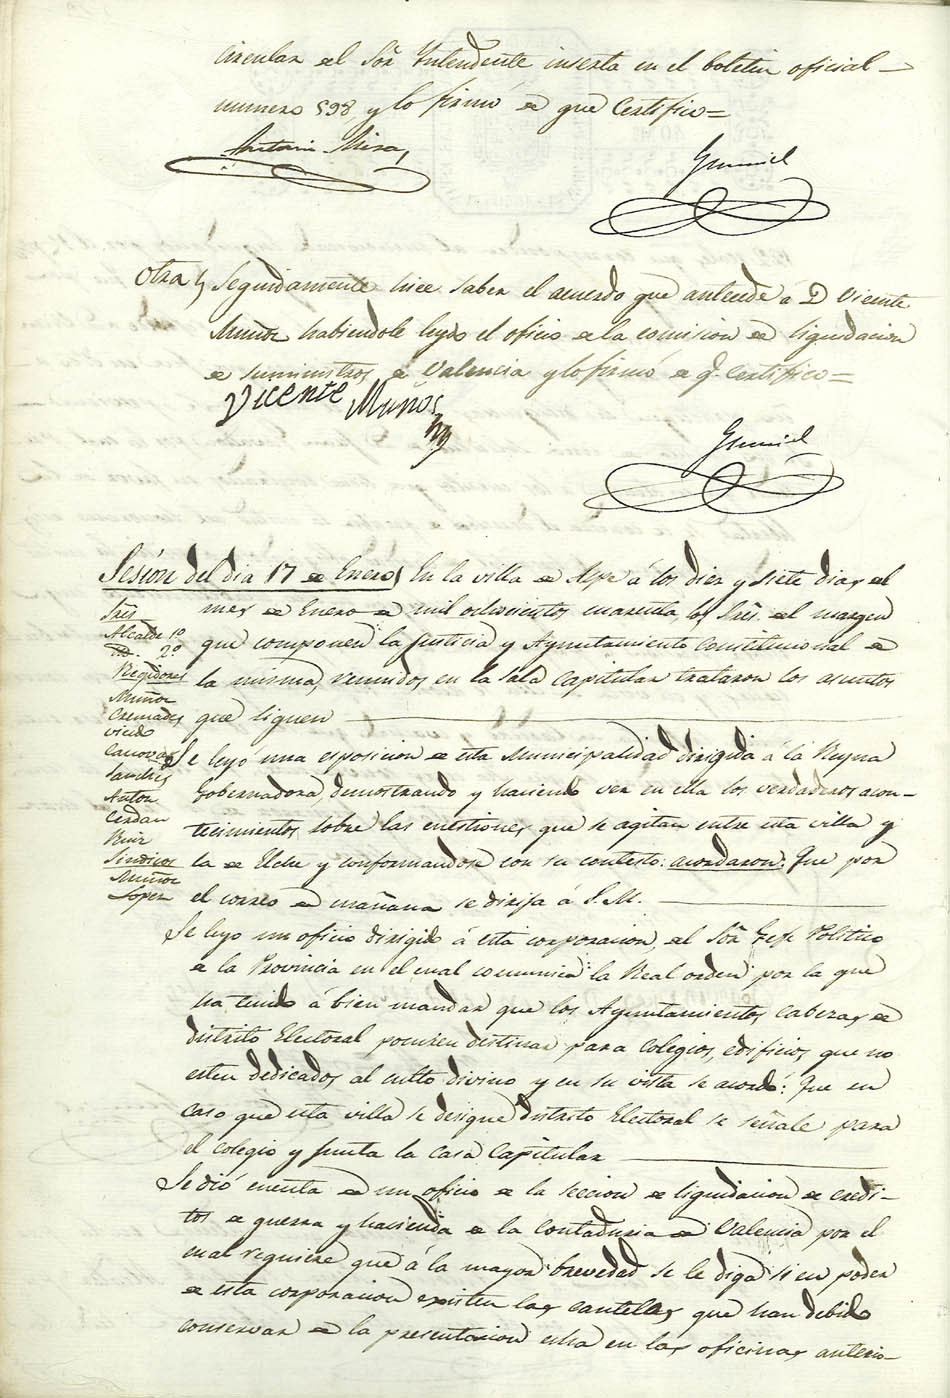 circular del Sōr Yntendente inserta en el boletin oficial
numero 598, y lo firmó de que Certifico=
Antonio Mira
Gumiel
Otra} Seguidamente hice saber el acuerdo que antecede á D Vicente
Muñoz habiendole leydo el oficio de la comision de liquidacion
de suministros de Valencia y lo firmó de q. Certifico=
Vicente Muños
Gumiel
Sesión del dia 17 de Enero} En la villa de Aspe á los diez y siete dias del
mes de Enero de mil ochocientos cuarenta, los Sres. del margen
que componen la Justicia y Ayuntamiento Constitucional de
la misma, reunidos en la Sala Capitular trataron los asuntos
que siguen
Sres
Alcalde 1º
Yd. 2º
Regidores
Muñoz
Cremades
Canovas
Sanchez
Anton
Cerdan
Ruiz
Sindicos
Muñoz
Lopez
Se leyó una esposicion de esta Municipalidad dirigida á la Reyna
Gobernadora, demostrando y haciendo ver en ella los verdaderos acon-
tecimientos sobre las cuestiones que se agitan entre esta villa y
la de Elche y conformandose con su contesto: acordaron: Que por
el correo de mañana se dirija á S.M.
Se leyo un oficio dirigido á esta corporacion, del Sōr Gefe Politico
de la Provincia en el cual comunica la Real orden por la que
ha tenido á bien mandar que los Ayuntamientos cabezas de
distrito Electoral procuren destinar para Colegios, edificios, que no
esten dedicados al culto divino y en su vista se acordó: Que en
caso que esta villa se designe distrito Electoral se señale para
el colegio y Junta la casa Capitular
Se dió cuenta de un oficio de la seccion de liquidacion de credi-
tos de guerra y hacienda de la Contaduria de Valencia por el
cual requiere que á la mayor brevedad se le diga si en poder
de esta corporacion existen las cautelas que han debido
conservar de la presentacion echa en las oficinas anterio-